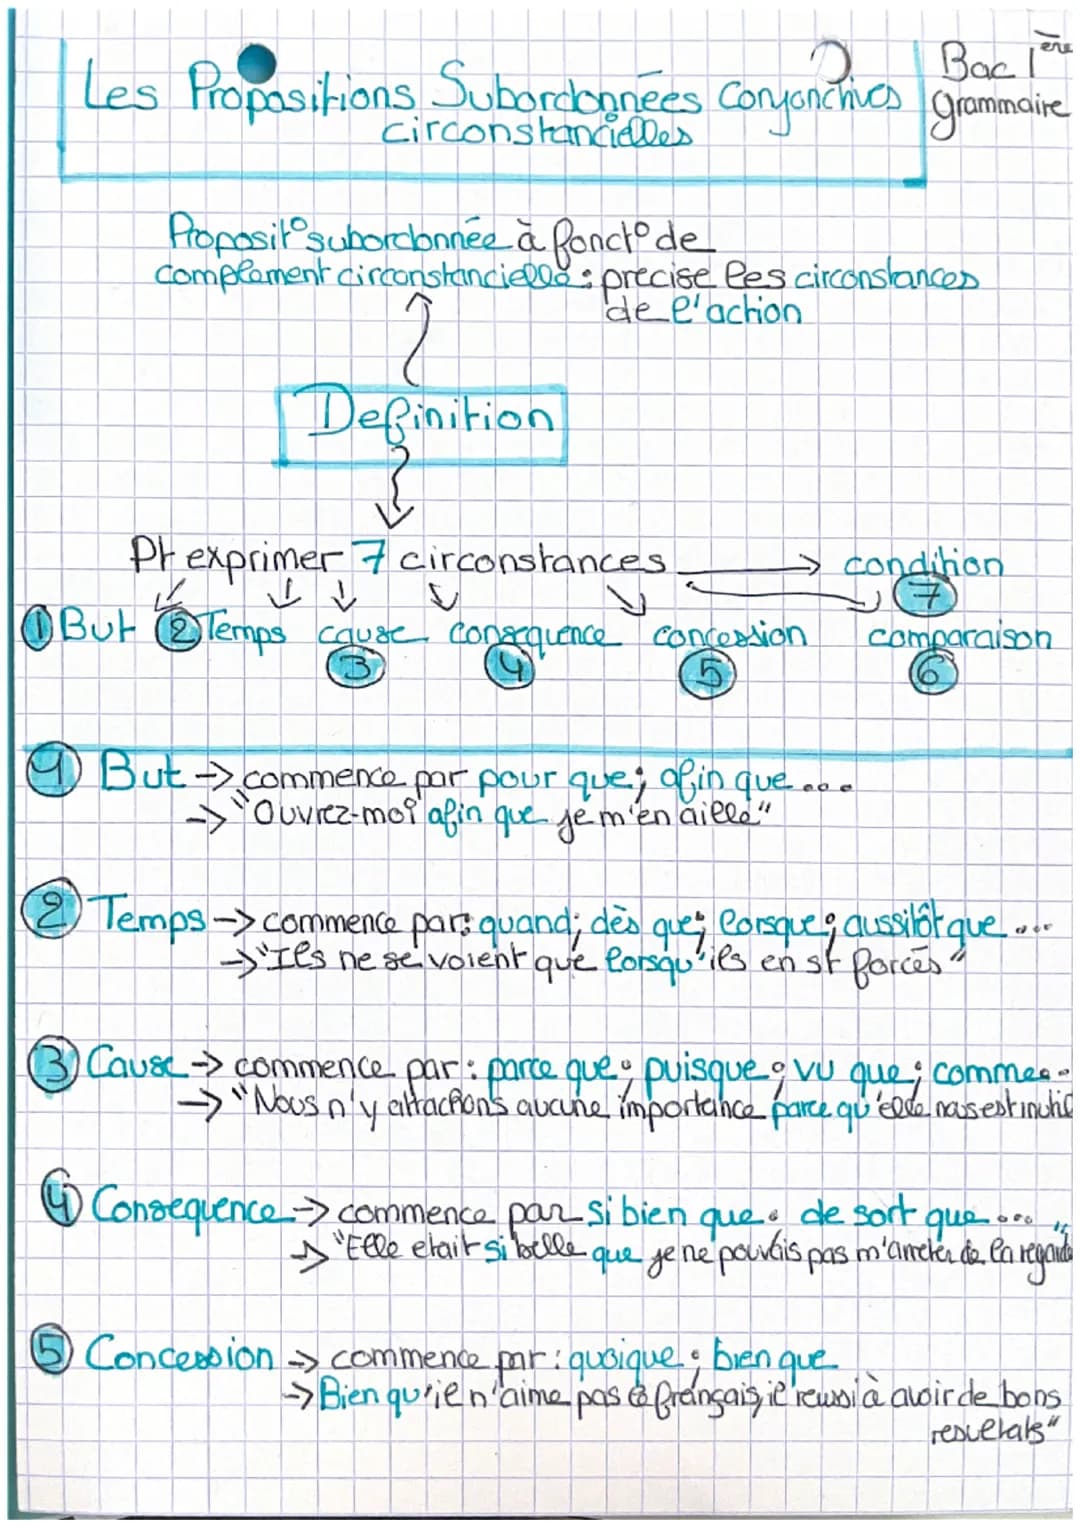 Les Propositions Subordonnées Conjonctives
circonstancielles
Bac 1ère
grammaire
Proposit° subordonnée à fonct° de
complément circonstancielle : precise les circonstances
de l'action
Definition
Pt exprimer 7 circonstances → condition
7
① But ② Temps cause consequence concession comparaison
3 4 5 6
1 But → commence par pour que; afin que ...
→ "Ouvrez-moi afin que je m'en aille"
2 Temps → commence par: quand; dès que; lorsque; aussitôt que ...
→ "Ils ne se voient que lorsqu'ils en st forcés"
3 Cause → commence par : parce que; puisque; vu que; comme..
→ "Nous n'y attachons aucune importance parce qu'elle nous est inutil
4 Consequence → commence par si bien que. de sort que ...
→ "Elle etait si belle que je ne pouvais pas m'arreter de la regarde"
5 Concession → commence par : quoique; bien que
→ Bien qu'il n'aime pas le français, il reussi à avoir de bons
resultats"